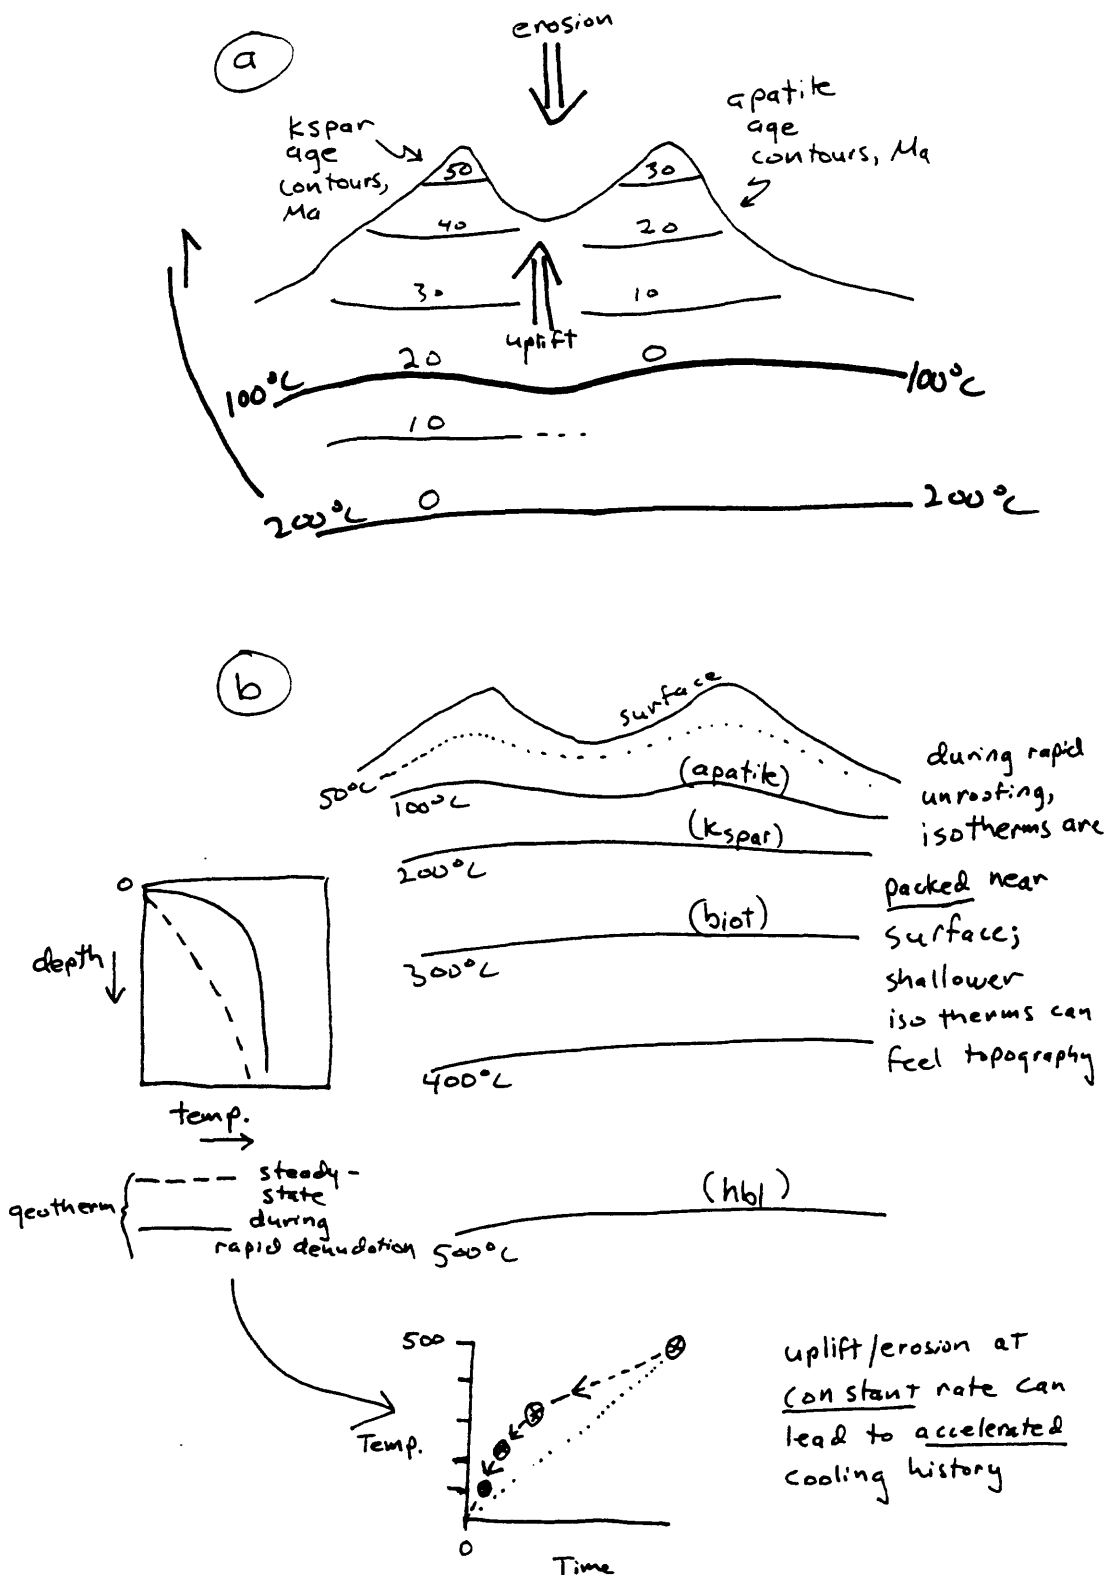 a
erosion
kspar
age
contours,
Ma
apatite
age
contours, Ma
50
30
40
20
30
10
uplift
20
0
100°C
100°C
10
0
200°C
200°C
b
surface
50°C
100°C
(apatite)
200°C
(kspar)
300°C
(biot)
400°C
during rapid
unroofing,
isotherms are
packed near
surface;
shallower
isotherms can
feel topography
0
depth
temp.
geotherm
steady-
state
during
rapid denudation
500°C
(hbl)
500
Temp.
0
Time
uplift/erosion at
constant rate can
lead to accelerated
cooling history